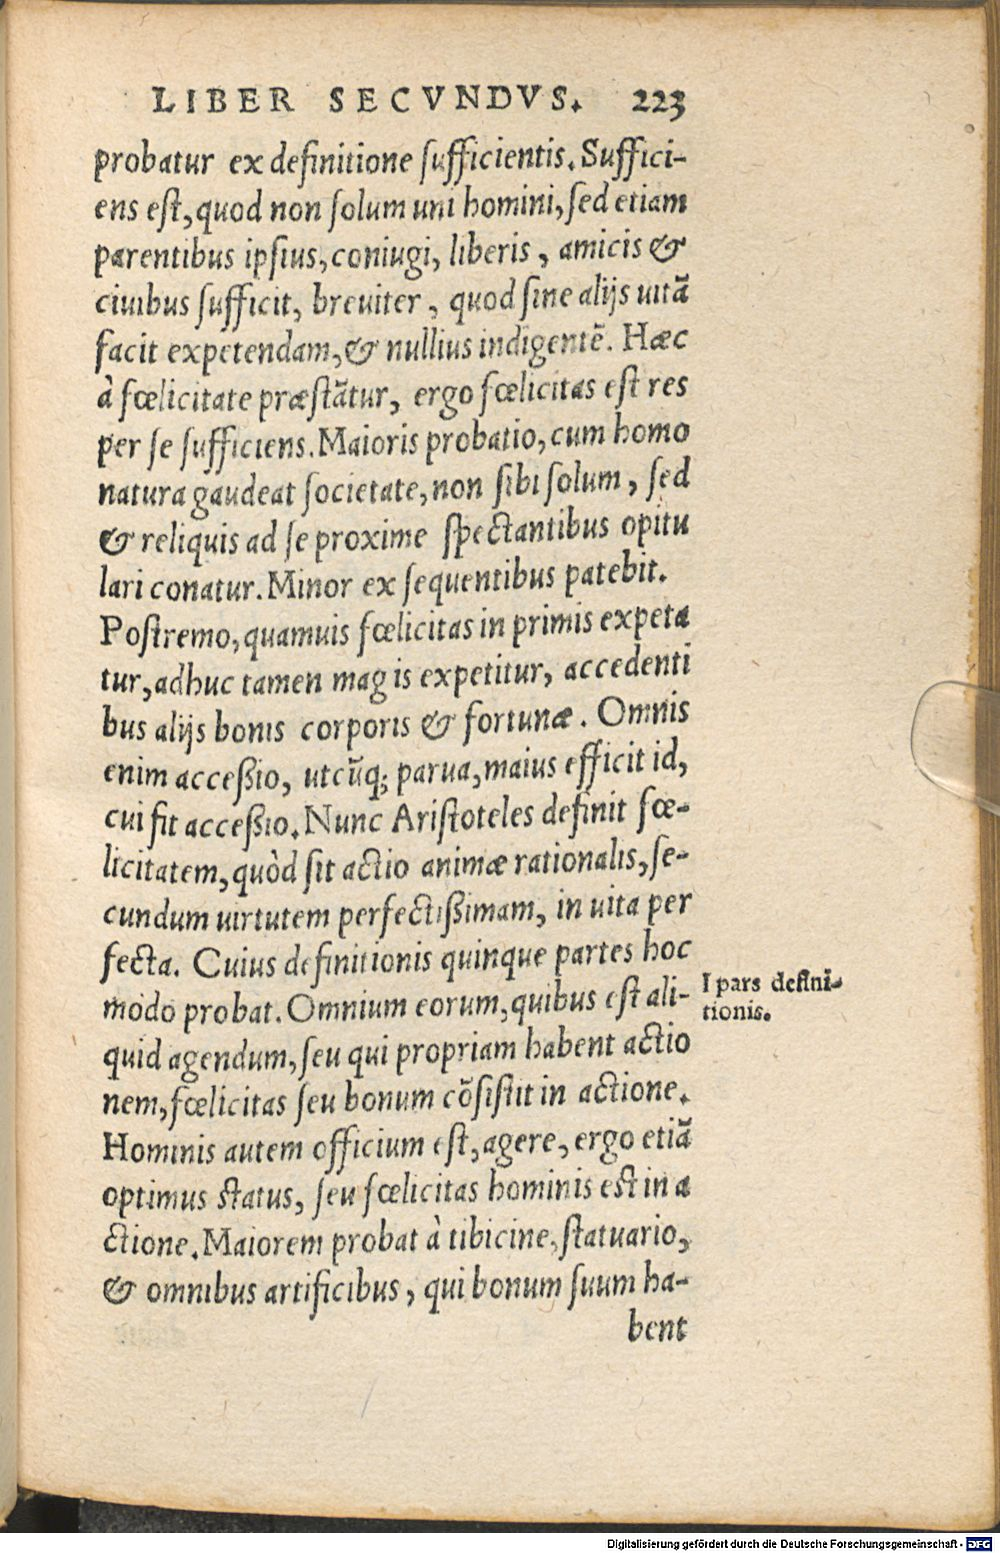 LIBER SECVNDVS. 223
probatur ex definitione ſufficientis. Suffici-
ens eſt, quod non ſolum uni homini, ſed etiam
parentibus ipſius, coniugi, liberis, amicis &
ciuibus ſufficit, breuiter, quod ſine alijs uitã
facit expetendam, & nullius indigentẽ. Hæc
à fœlicitate præſtãtur, ergo fœlicitas eſt res
per ſe ſufficiens. Maioris probatio, cum homo
natura gaudeat ſocietate, non ſibi ſolum, ſed
& reliquis ad ſe proxime ſpectantibus opitu
lari conatur. Minor ex ſequentibus patebit.
Poſtremo, quamuis fœlicitas in primis expeta
tur, adhuc tamen magis expetitur, accedenti
bus alijs bonis corporis & fortunæ. Omnis
enim acceßio, utcũq; parua, maius efficit id,
cui fit acceßio. Nunc Ariſtoteles definit fœ-
licitatem, quòd ſit actio animæ rationalis, ſe-
cundum uirtutem perfectißimam, in uita per
fecta. Cuius definitionis quinque partes hoc
modo probat. Omnium eorum, quibus eſt ali-
quid agendum, ſeu qui propriam habent actio
nem, fœlicitas ſeu bonum cõſiſtit in actione.
Hominis autem officium eſt, agere, ergo etiã
optimus ſtatus, ſeu fœlicitas hominis eſt in a
ctione. Maiorem probat à tibicine, ſtatuario,
& omnibus artificibus, qui bonum ſuum ha-
bent
I pars defini-
tionis.
Digitalisierung gefördert durch die Deutsche Forschungsgemeinschaft - DFG